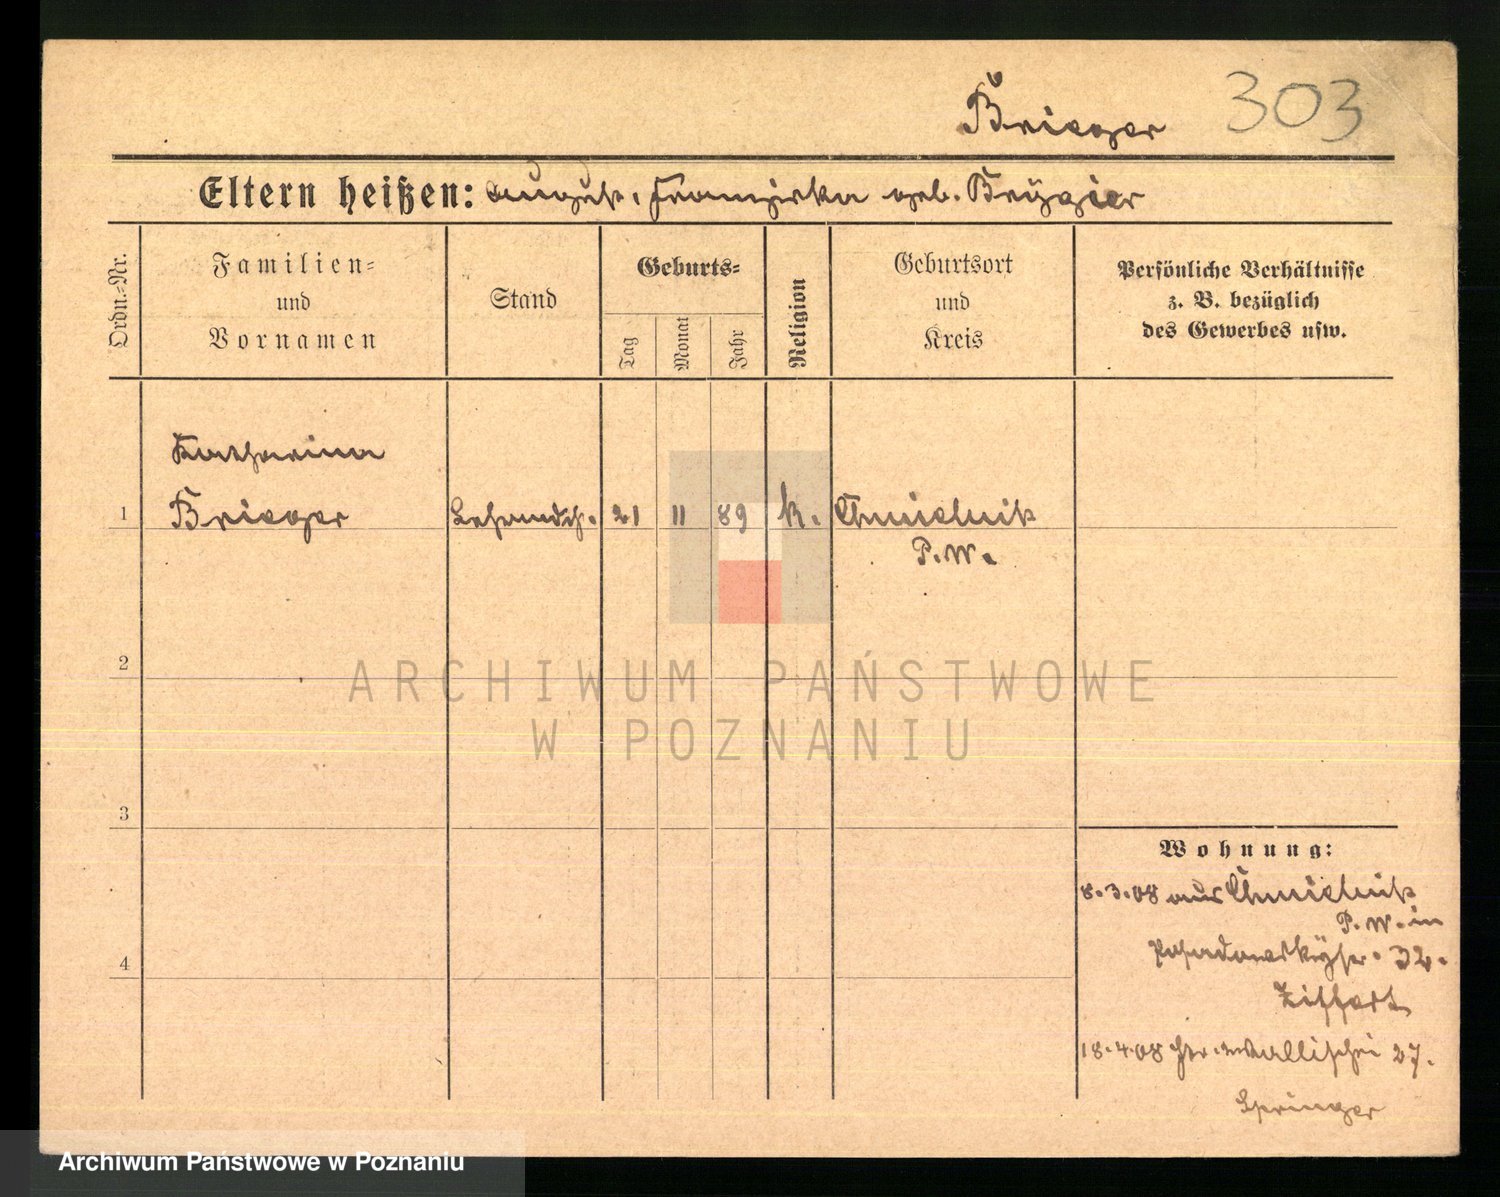 Brieger 303
Eltern heißen: August, Franziska geb. Bryggier
Ordn.-Nr.
Familien-
und
Vornamen
Stand
Geburts-
Tag
Monat
Jahr
Religion
Geburtsort
und
Kreis
Persönliche Verhältnisse
z. B. bezüglich
des Gewerbes usw.
Katharina
1 Brieger 21 11 89 k. Chmielnik
P. W.
2
ARCHIWUM PAŃSTWOWE
W POZNANIU
3
Wohnung:
8.3.08 aus Chmielnik
P. W. in
4
Posadowskystr. 32.
18.4.08 Wallischei 27.
Springer
Archiwum Państwowe w Poznaniu